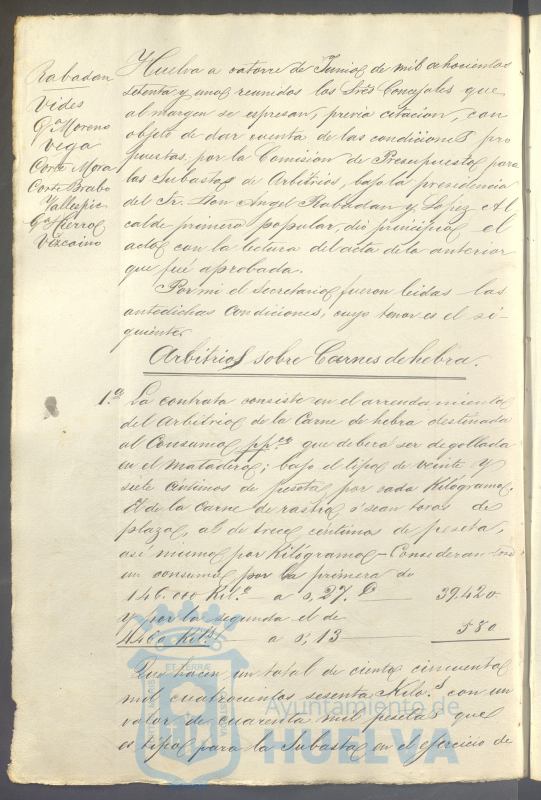 Rabadan
Vides
Gª Moreno
Vega
Corte Mora
Corte Brabo
Vallespin
Gª Hierro
Vizcaino
Huelva a catorce de Junio de mil ochocientos
setenta y uno reunidos los Sres Concejales que
al margen se espresan, previa citacion, con
objeto de dar cuenta de las condiciones pro
puestas por la Comision de Presupuestos para
las Subastas de Arbitrios, bajo la presidencia
del Sr. Don Angel Rabadan y Lopez Al
calde primero popular, dio principio el
acto con la lectura del acta de la anterior
que fue aprobada.
Por mi el Secretario fueron leidas las
antedichas condiciones, cuyo tenor es el si-
guiente
Arbitrios sobre Carnes de hebra.
1.ª La contrata consiste en el arrendamiento
del Arbitrio de la Carne de hebra destinada
al Consumo ppco que deberá ser degollada
en el Matadero; bajo el tipo de veinte y
siete céntimos de peseta por cada Kilógramo,
de la Carne de rastro ó sean toros de
plaza, al de trece céntimos de peseta,
asi mismo por Kilógramo - Considerando
un consumo por la primera de
146.000 Kil.s a 0,27. 39.420
y por la segunda el de
Kil.s a 0,13 580
Que hacen un total de ciento cincuenta
mil cuatrocientos sesenta Kilo.s con un
valor de cuarenta mil pesetas que
es tipo para la Subasta en el ejercicio de
Ayuntamiento de
HUELVA